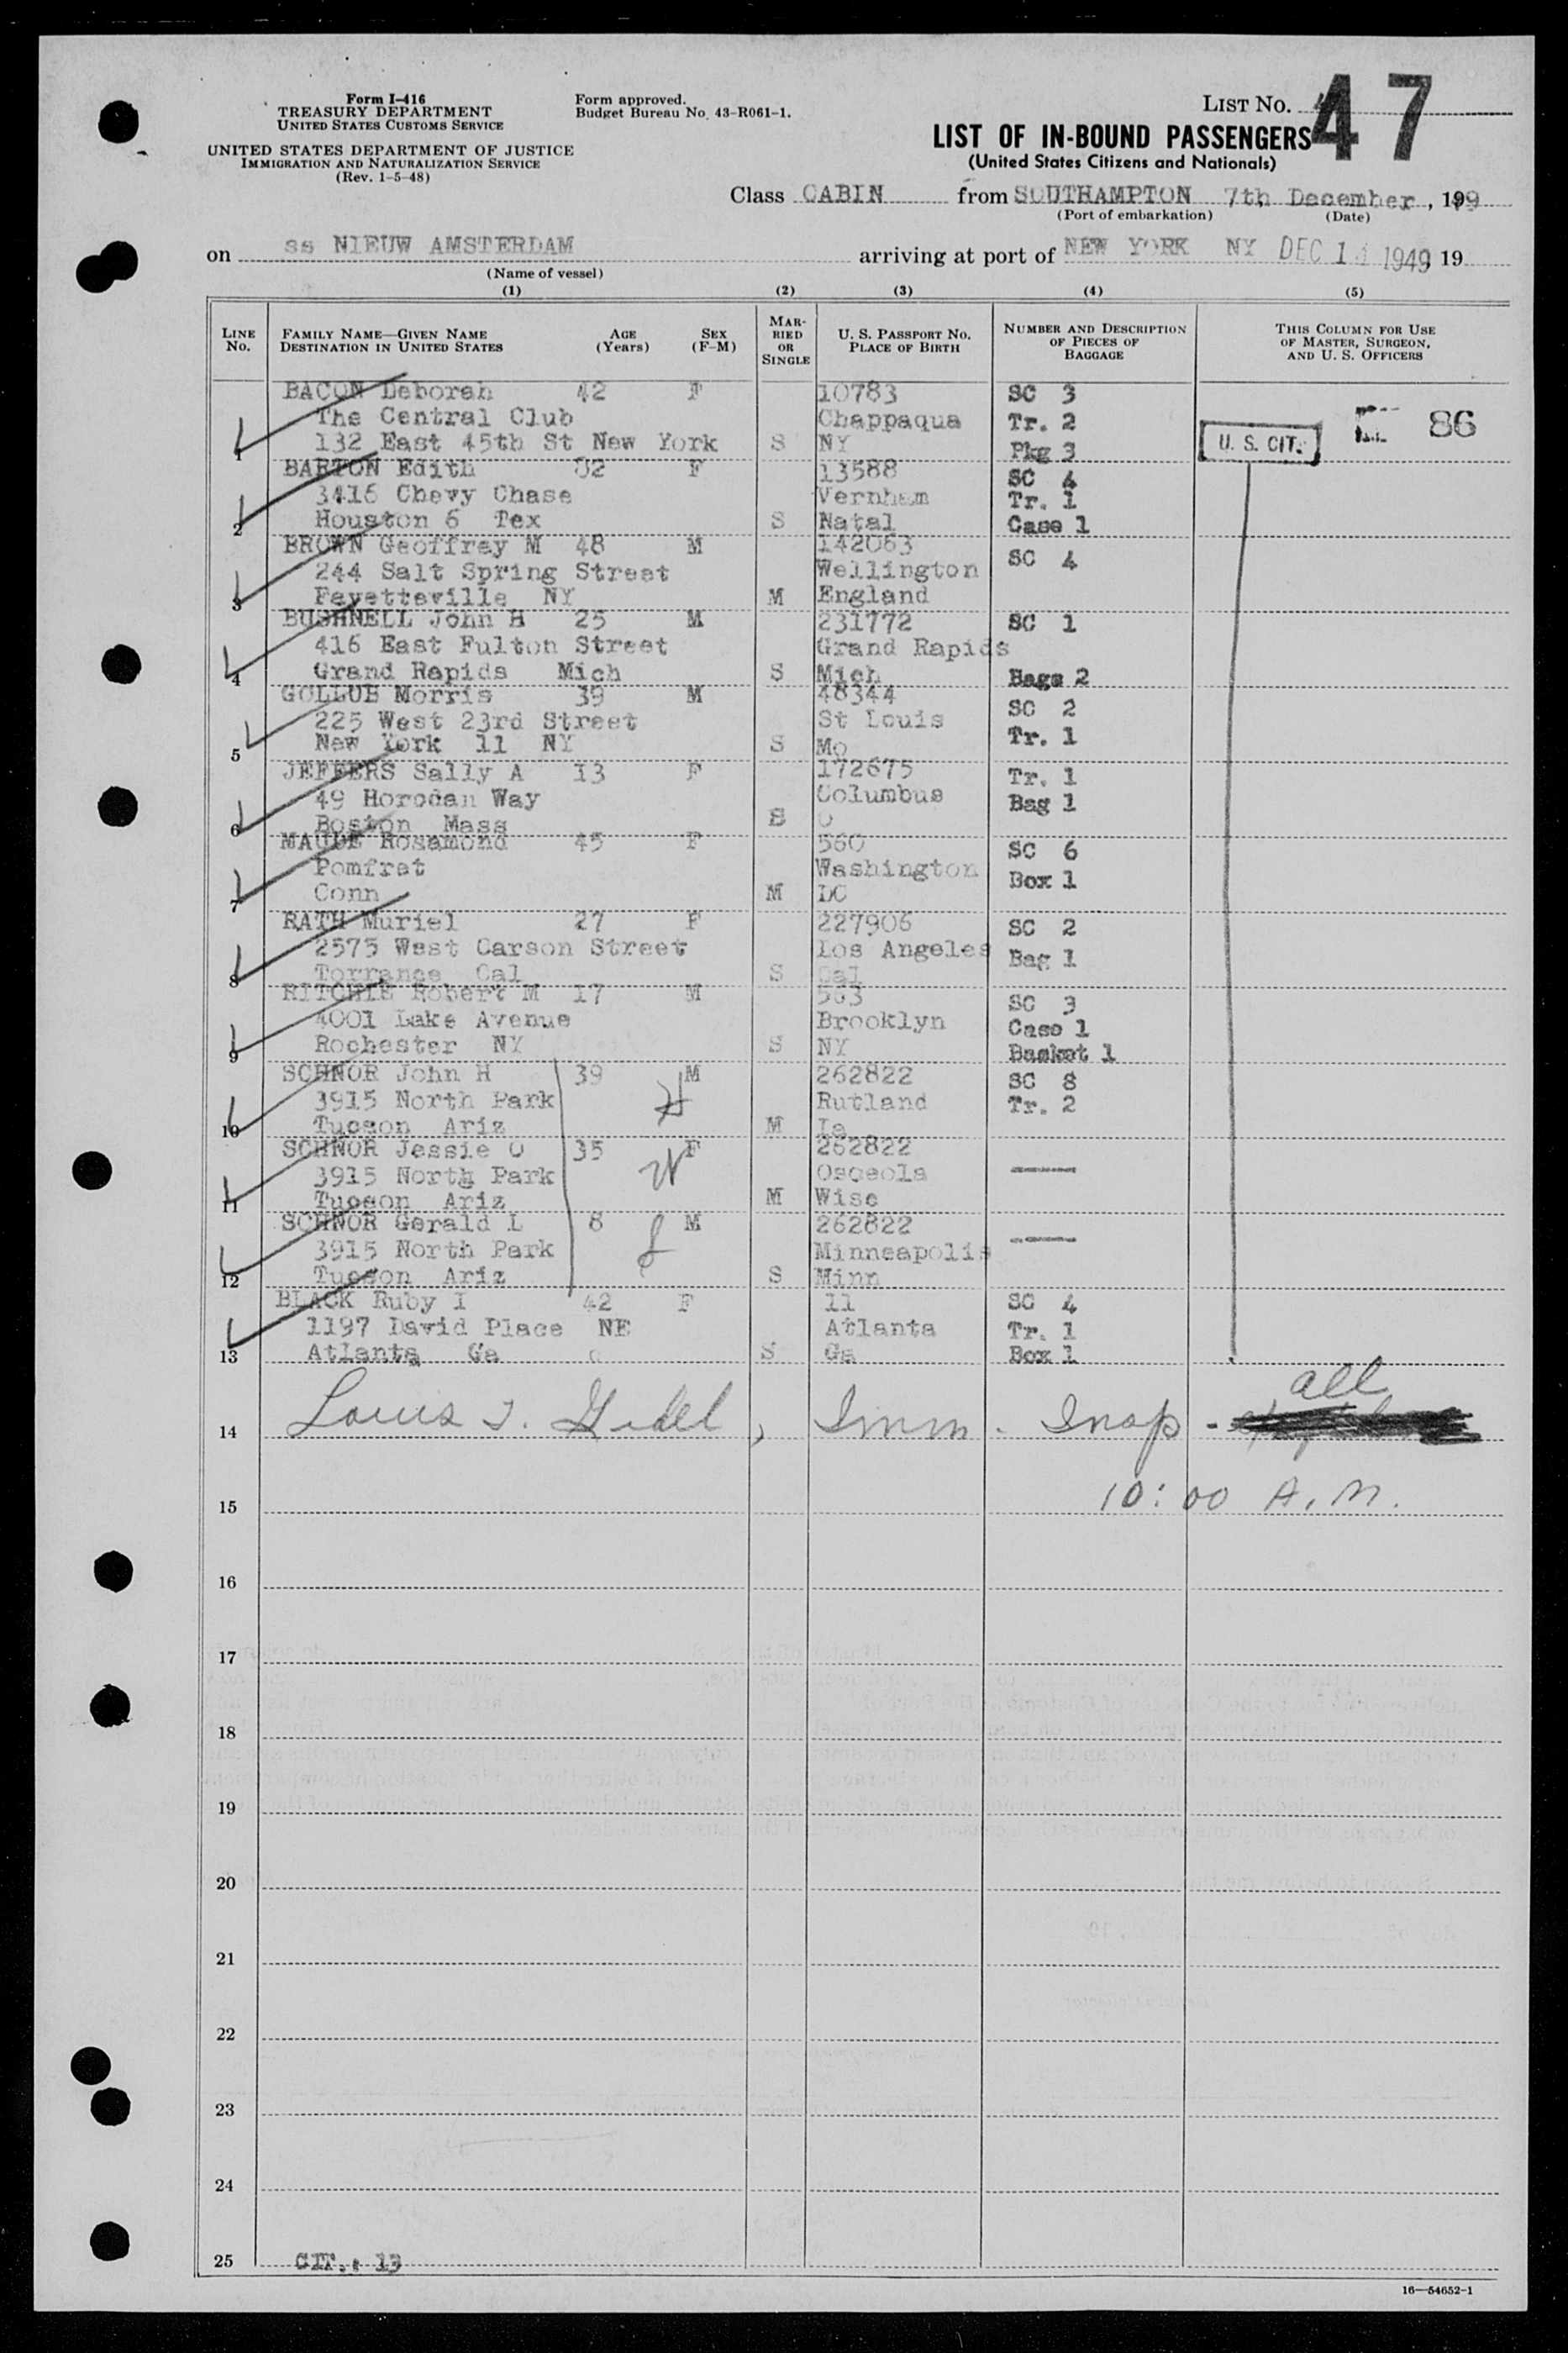 Form I-416
TREASURY DEPARTMENT
UNITED STATES CUSTOMS SERVICE
UNITED STATES DEPARTMENT OF JUSTICE
IMMIGRATION AND NATURALIZATION SERVICE
(Rev. 1-5-48)
Form approved.
Budget Bureau No. 43-R061-1.
LIST No. 47
LIST OF IN-BOUND PASSENGERS
(United States Citizens and Nationals)
Class CABIN from SOUTHAMPTON 7th December, 1949
(Port of embarkation) (Date)
on ss NIEUW AMSTERDAM arriving at port of NEW YORK NY DEC 1 1949 19
(Name of vessel)
(1) (2) (3) (4) (5)
LINE No. FAMILY NAME—GIVEN NAME DESTINATION IN UNITED STATES AGE (Years) SEX (F-M) MARRIED OR SINGLE U. S. PASSPORT No. PLACE OF BIRTH NUMBER AND DESCRIPTION OF PIECES OF BAGGAGE THIS COLUMN FOR USE OF MASTER, SURGEON, AND U. S. OFFICERS
BACON Deborah 42 F 10783 SC 3
The Central Club Chappaqua Tr. 2 86
1 132 East 45th St New York S NY Pkg 3 U. S. CIT.
BARTON Edith F 13588 SC 4
3416 Chevy Chase Vernham Tr. 1
2 Houston 6 Tex S Natal Case 1
BROWN Geoffrey M 48 M 142063 SC 4
244 Salt Spring Street Wellington
3 Fayetteville NY M England
BUSHNELL John H 25 M 231772 SC 1
416 East Fulton Street Grand Rapids
4 Grand Rapids Mich S Mich Bags 2
GOLLUB Morris 39 M 48344 SC 2
225 West 23rd Street St Louis Tr. 1
5 New York 11 NY S Mo
JEFFERS Sally A 13 F 172675 Tr. 1
49 Horodan Way Columbus Bag 1
6 Boston Mass S O
MAUDE Rosamond 45 F 560 SC 6
Pomfret Washington Box 1
7 Conn M DC
RATH Muriel 27 F 227906 SC 2
2575 West Carson Street Los Angeles Bag 1
8 Torrance Cal S Cal
RITCHIE Robert M 17 M 563 SC 3
4001 Lake Avenue Brooklyn Case 1
9 Rochester NY S NY Basket 1
SCHNOR John H 39 M 262822 SC 8
3915 North Park Rutland Tr. 2
10 Tucson Ariz M Ia
SCHNOR Jessie O 35 F 262822
3915 North Park Osceola
11 Tucson Ariz M Wisc
SCHNOR Gerald L 8 M 262822
3915 North Park Minneapolis
12 Tucson Ariz S Minn
BLACK Ruby I 42 F 11 SC 4
1197 David Place NE Atlanta Tr. 1
13 Atlanta Ga S Ga Box 1
all
14 Louis J. , Imm. Insp -
15 10:00 A.M.
16
17
18
19
20
21
22
23
24
25 CIT.: 13
16—54652-1